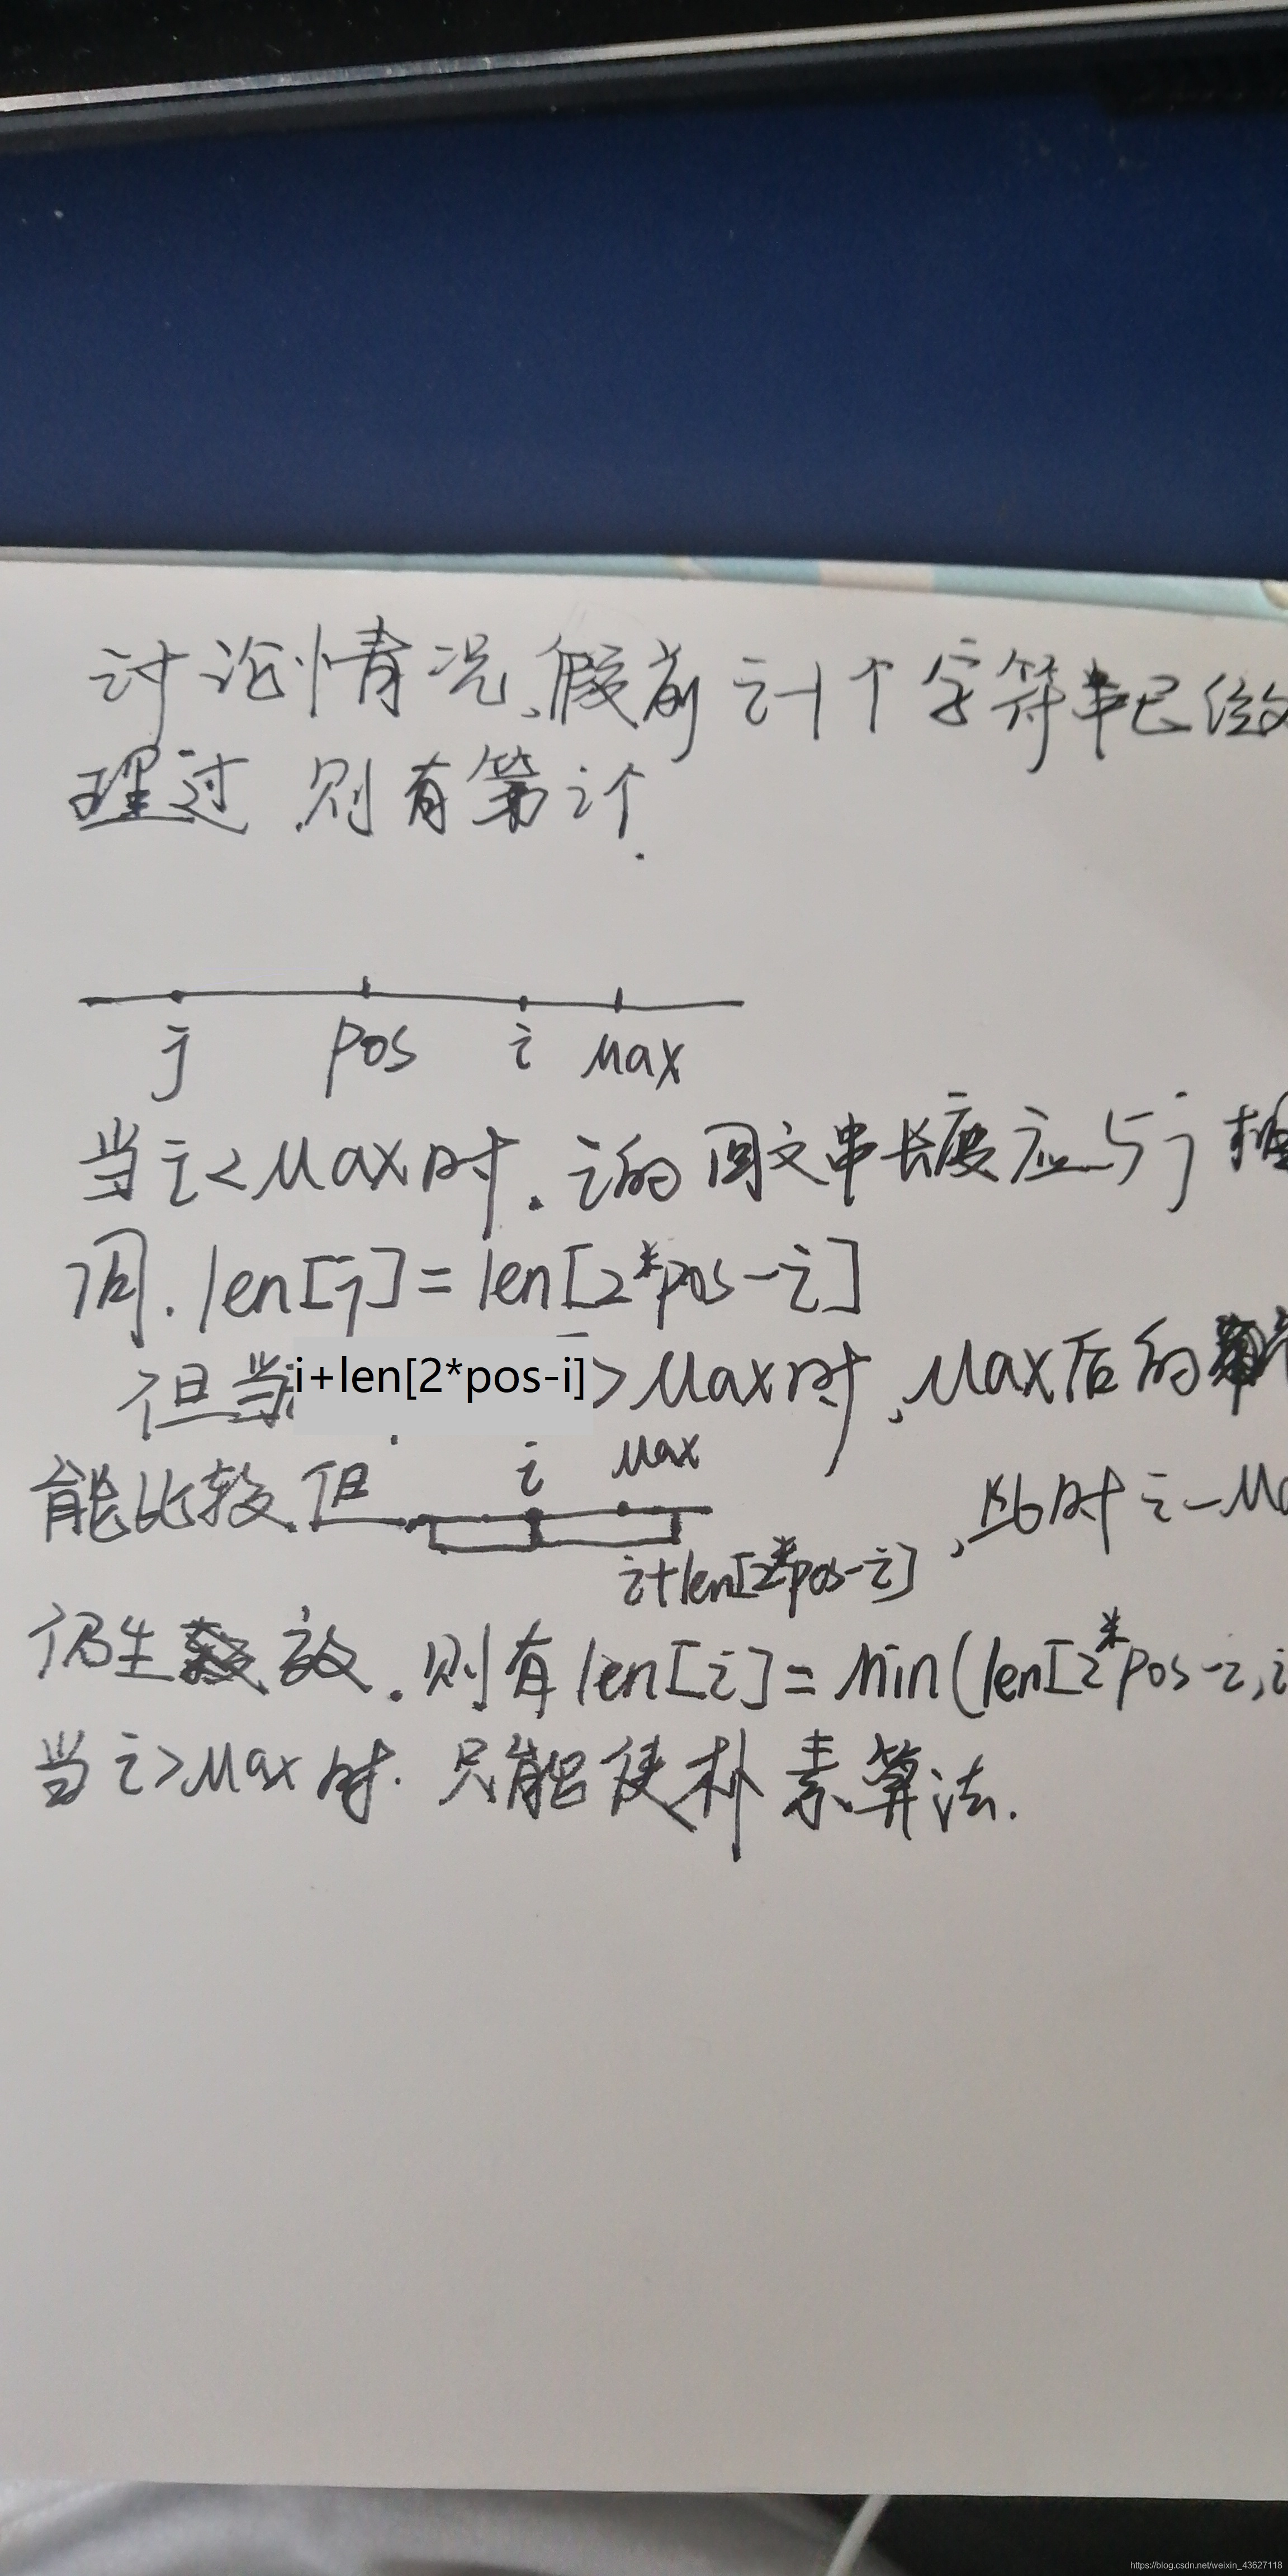 讨论情况,假前i-1个字符串已做
理过.则有第i个.
j pos i Max
当i<Max时.i的回文串长度应与j相
同.len[j]=len[2*pos-i]
但当i+len[2*pos-i]>Max时,Max后的
能比较.但 i Max ,此时i-Ma
i+len[2*pos-i]
仍生效.则有len[i]=Min(len[2*pos-i,i
当i>Max时.只能使朴素算法.
https://blog.csdn.net/weixin_43627118